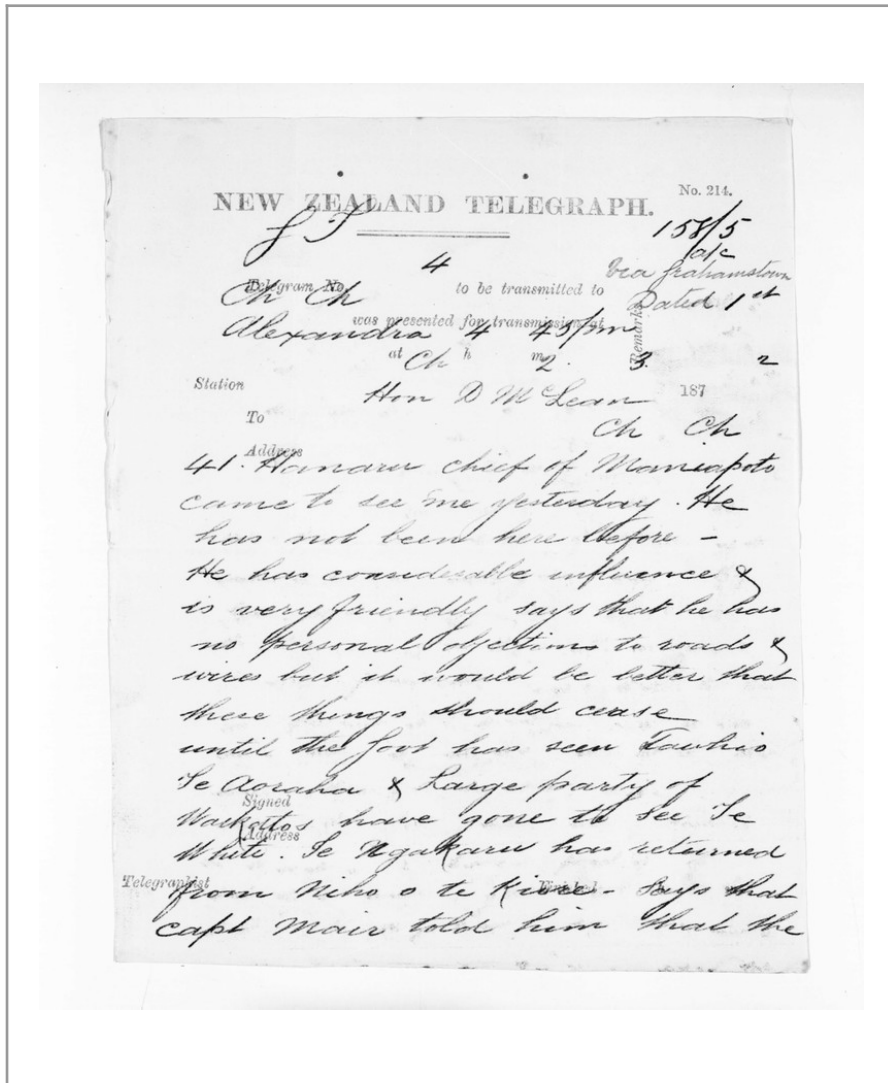 No. 214.
NEW ZEALAND TELEGRAPH.
158/5
a/c
4 via Grahamstown
Telegram No. to be transmitted to
Ch Ch Dated 1st
was presented for transmission at
Alexandra 4 45 pm
Remarks
at Ch h m 2. 3. 2
Station Hon D McLean 187
To
Ch Ch
Address
41. Hanaru chief of Maniapoto
came to see me yesterday. He
has not been here before -
He has considerable influence &
is very friendly says that he has
no personal objections to roads &
wires but it would be better that
these things should cease
until the Govt has seen Tawhio
Te Aoraha & Large party of
Signed
Waikatos have gone to see Te
Address
White. Te Ngakaru has returned
Telegraphist
from Niho o te Kiore - Says that
capt Mair told him that the